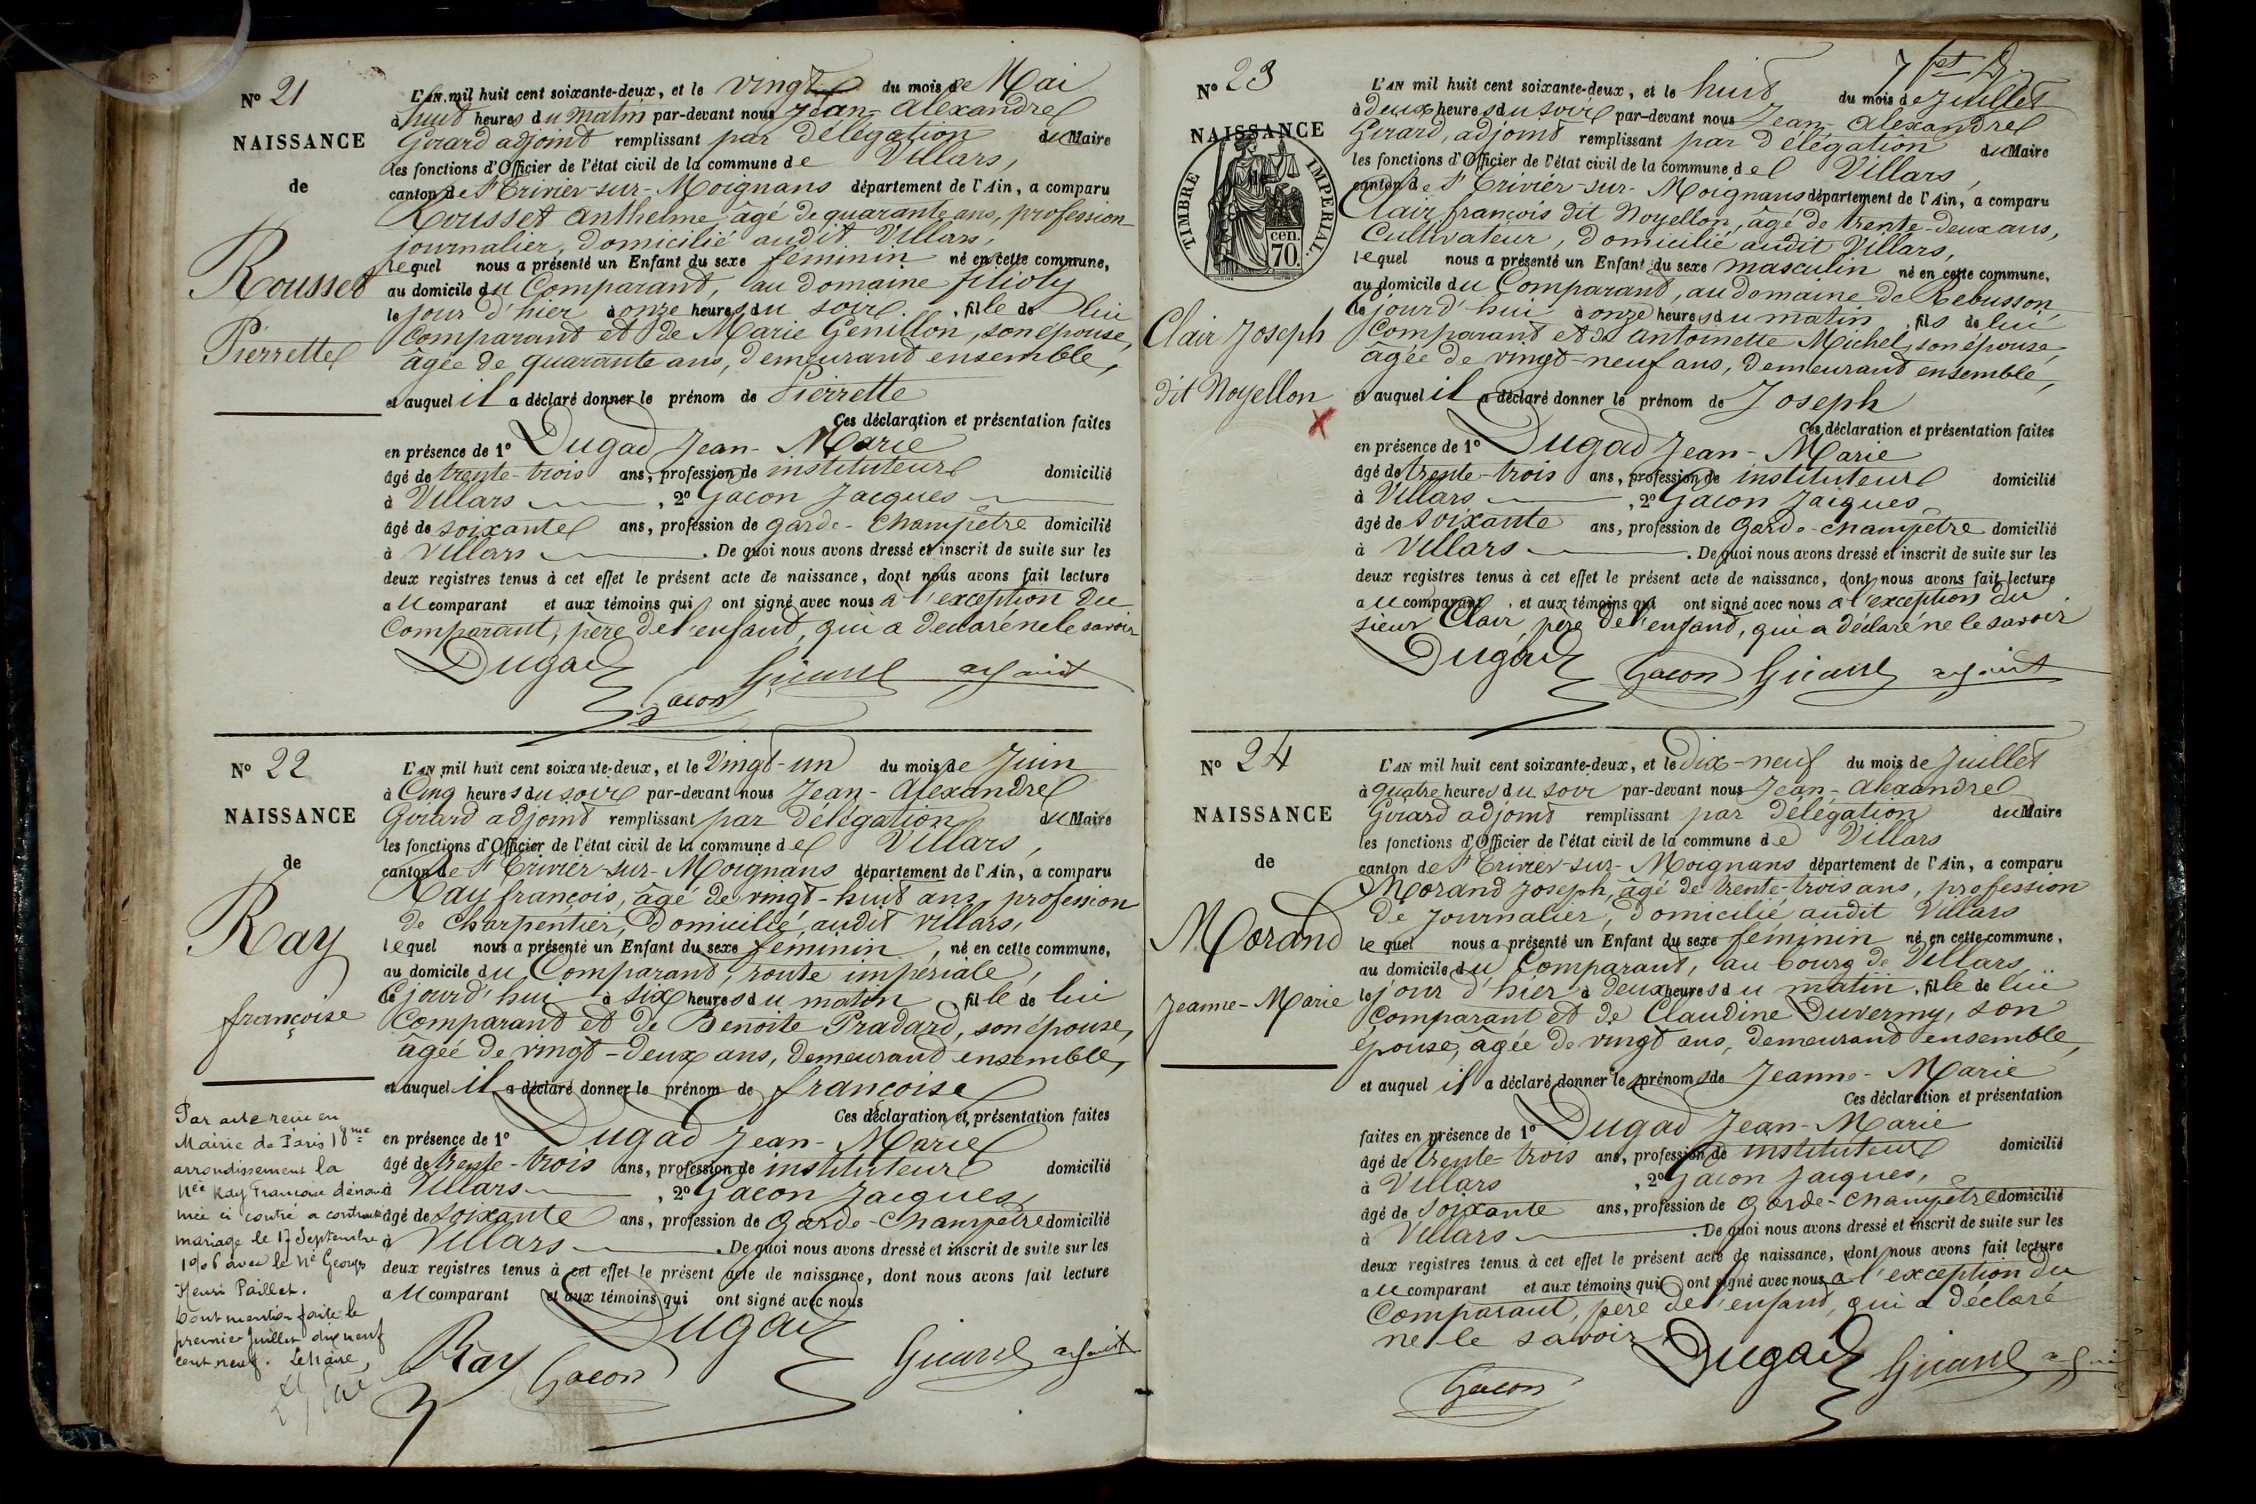 N° 21
NAISSANCE
de
Rousset
Pierrette
L'AN mil huit cent soixante-deux, et le vingt du mois de Mai
à huit heures du matin par-devant nous Jean-Alexandre
Girard adjoint remplissant par délégation du Maire
les fonctions d'Officier de l'état civil de la commune de Villars,
canton de St Trivier-sur-Moignans département de l'Ain, a comparu
Rousset Anthelme âgé de quarante ans, profession
journalier, domicilié audit Villars,
lequel nous a présenté un Enfant du sexe féminin né en cette commune,
au domicile du Comparant, au domaine filioly
le jour d'hier à onze heures du soir, fille de lui
Comparant et de Marie Genillon, son épouse,
âgée de quarante ans, demeurant ensemble,
et auquel il a déclaré donner le prénom de Pierrette
Ces déclaration et présentation faites
en présence de 1° Dugad Jean-Marie
âgé de trente-trois ans, profession de instituteur domicilié
à Villars, 2° Gacon Jacques
âgé de soixante ans, profession de garde-champêtre domicilié
à Villars. De quoi nous avons dressé et inscrit de suite sur les
deux registres tenus à cet effet le présent acte de naissance, dont nous avons fait lecture
au comparant et aux témoins qui ont signé avec nous à l'exception du
Comparant, père de l'enfant, qui a déclaré ne le savoir
Dugad Gacon Girard adjoint
N° 22
NAISSANCE
de
Ray
françoise
L'AN mil huit cent soixante-deux, et le Vingt-un du mois de Juin
à Cinq heures du soir par-devant nous Jean-Alexandre
Girard adjoint remplissant par délégation du Maire
les fonctions d'Officier de l'état civil de la commune de Villars,
canton de St Trivier-sur-Moignans département de l'Ain, a comparu
Ray françois, âgé de vingt-huit ans, profession
de charpentier, domicilié audit Villars,
lequel nous a présenté un Enfant du sexe féminin, né en cette commune,
au domicile du Comparant, route impériale,
le jourd'hui à six heures du matin, fille de lui
Comparant et de Benoite Pradard, son épouse,
âgée de vingt-deux ans, demeurant ensemble,
et auquel il a déclaré donner le prénom de françoise
Ces déclaration et présentation faites
en présence de 1° Dugad Jean-Marie
âgé de trente-trois ans, profession de instituteur domicilié
à Villars, 2° Gacon Jacques,
âgé de soixante ans, profession de Garde-champêtre domicilié
à Villars. De quoi nous avons dressé et inscrit de suite sur les
deux registres tenus à cet effet le présent acte de naissance, dont nous avons fait lecture
au comparant et aux témoins qui ont signé avec nous
Ray Gacon Dugad Girard adjoint
Par acte reçu en
Mairie de Paris 18me
arrondissement la
née Ray Françoise dénom
mée ci contre a contracté
mariage le 17 Septembre
1906 avec le né Georges
Henri Paillet.
Dont mention faite le
premier Juillet dix neuf
cent neuf. Le Maire,
N° 23
NAISSANCE
TIMBRE IMPERIAL.
70. cen.
Clair Joseph
dit Noyellon
X
L'AN mil huit cent soixante-deux, et le huit du mois de Juillet
à deux heures du soir par-devant nous Jean-Alexandre
Girard, adjoint remplissant par délégation du Maire
les fonctions d'Officier de l'état civil de la commune de Villars,
canton de St Trivier-sur-Moignans département de l'Ain, a comparu
Clair françois dit Noyellon, âgé de trente-deux ans,
Cultivateur, domicilié audit Villars,
lequel nous a présenté un Enfant du sexe masculin né en cette commune,
au domicile du Comparant, au domaine de Rebusson,
le jourd'hui à onze heures du matin, fils de lui
Comparant et de Antoinette Michel, son épouse,
âgée de vingt-neuf ans, demeurant ensemble,
et auquel il a déclaré donner le prénom de Joseph
Ces déclaration et présentation faites
en présence de 1° Dugad Jean-Marie
âgé de trente-trois ans, profession de instituteur domicilié
à Villars, 2° Gacon Jacques
âgé de soixante ans, profession de Garde-champêtre domicilié
à Villars. De quoi nous avons dressé et inscrit de suite sur les
deux registres tenus à cet effet le présent acte de naissance, dont nous avons fait lecture
au comparant, et aux témoins qui ont signé avec nous à l'exception du
sieur Clair, père de l'enfant, qui a déclaré ne le savoir
Dugad Gacon Girard adjoint
N° 24
NAISSANCE
de
Morand
Jeanne-Marie
L'AN mil huit cent soixante-deux, et le Dix-neuf du mois de Juillet
à quatre heures du soir par-devant nous Jean-Alexandre
Girard adjoint remplissant par délégation du Maire
les fonctions d'Officier de l'état civil de la commune de Villars
canton de St Trivier-sur-Moignans département de l'Ain, a comparu
Morand Joseph, âgé de trente-trois ans, profession
de Journalier, domicilié audit Villars
lequel nous a présenté un Enfant du sexe féminin né en cette commune,
au domicile du Comparant, au bourg de Villars,
le jour d'hier à deux heures du matin, fille de lui
Comparant et de Claudine Duverny, son
épouse, âgée de vingt ans, demeurant ensemble,
et auquel il a déclaré donner les prénoms de Jeanne-Marie
Ces déclaration et présentation
faites en présence de 1° Dugad Jean-Marie
âgé de trente-trois ans, profession de instituteur domicilié
à Villars, 2° Gacon Jacques,
âgé de soixante ans, profession de Garde-champêtre domicilié
à Villars. De quoi nous avons dressé et inscrit de suite sur les
deux registres tenus à cet effet le présent acte de naissance, dont nous avons fait lecture
au comparant et aux témoins qui ont signé avec nous à l'exception du
Comparant, père de l'enfant, qui a déclaré
ne le savoir
Gacon Dugad Girard